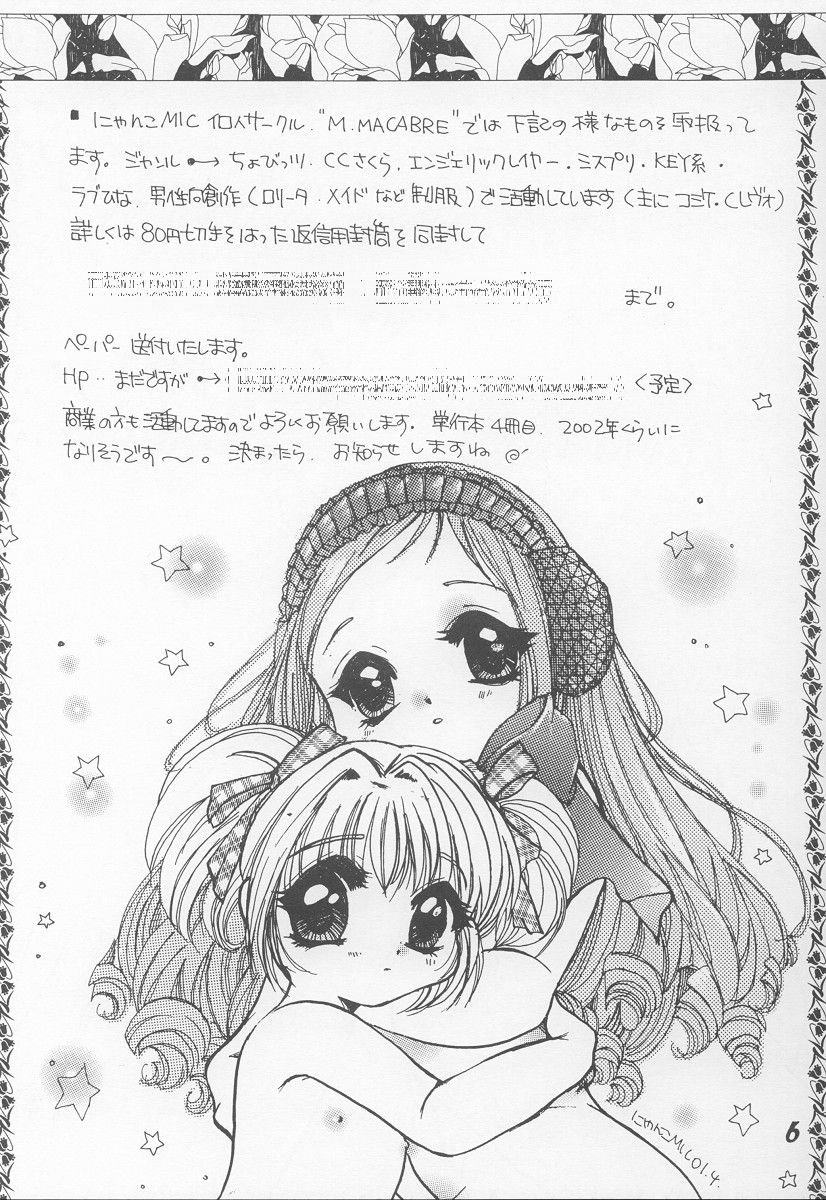 ▪ にゃんこMIC イロ人サークル."M.MACABRE"では下記の様なものを取扱って
ます。ジャンル ●→ ちょびっツ. CCさくら, エンジェリックレイヤー. ミスプリ. KEY系.
ラブひな, 男性向創作(ロリータ.メイドなど 制服)で活動しています(主に コミケ.Cレヴォ)
詳しくは 80円切手をはった返信用封筒を同封して
まで。
ペーパー 送付いたします。
HP‥まだですが ●→ 〈予定〉
商業の方も活動してますのでよろしくお願いします. 単行本 4冊目. 2002年くらいに
なりそうです〜。決まったら, お知らせしますね
にゃんこMIC 01.4.
6